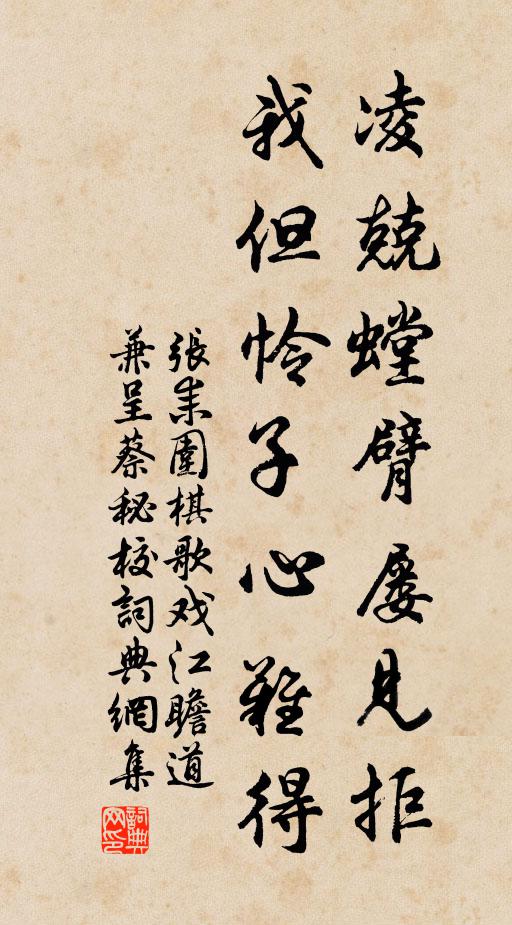 凌兢螳臂屡見拒
我但怜子心難得
張耒圍棋歌戏江瞻道
兼呈蔡秘校詞典網集
詞典网印